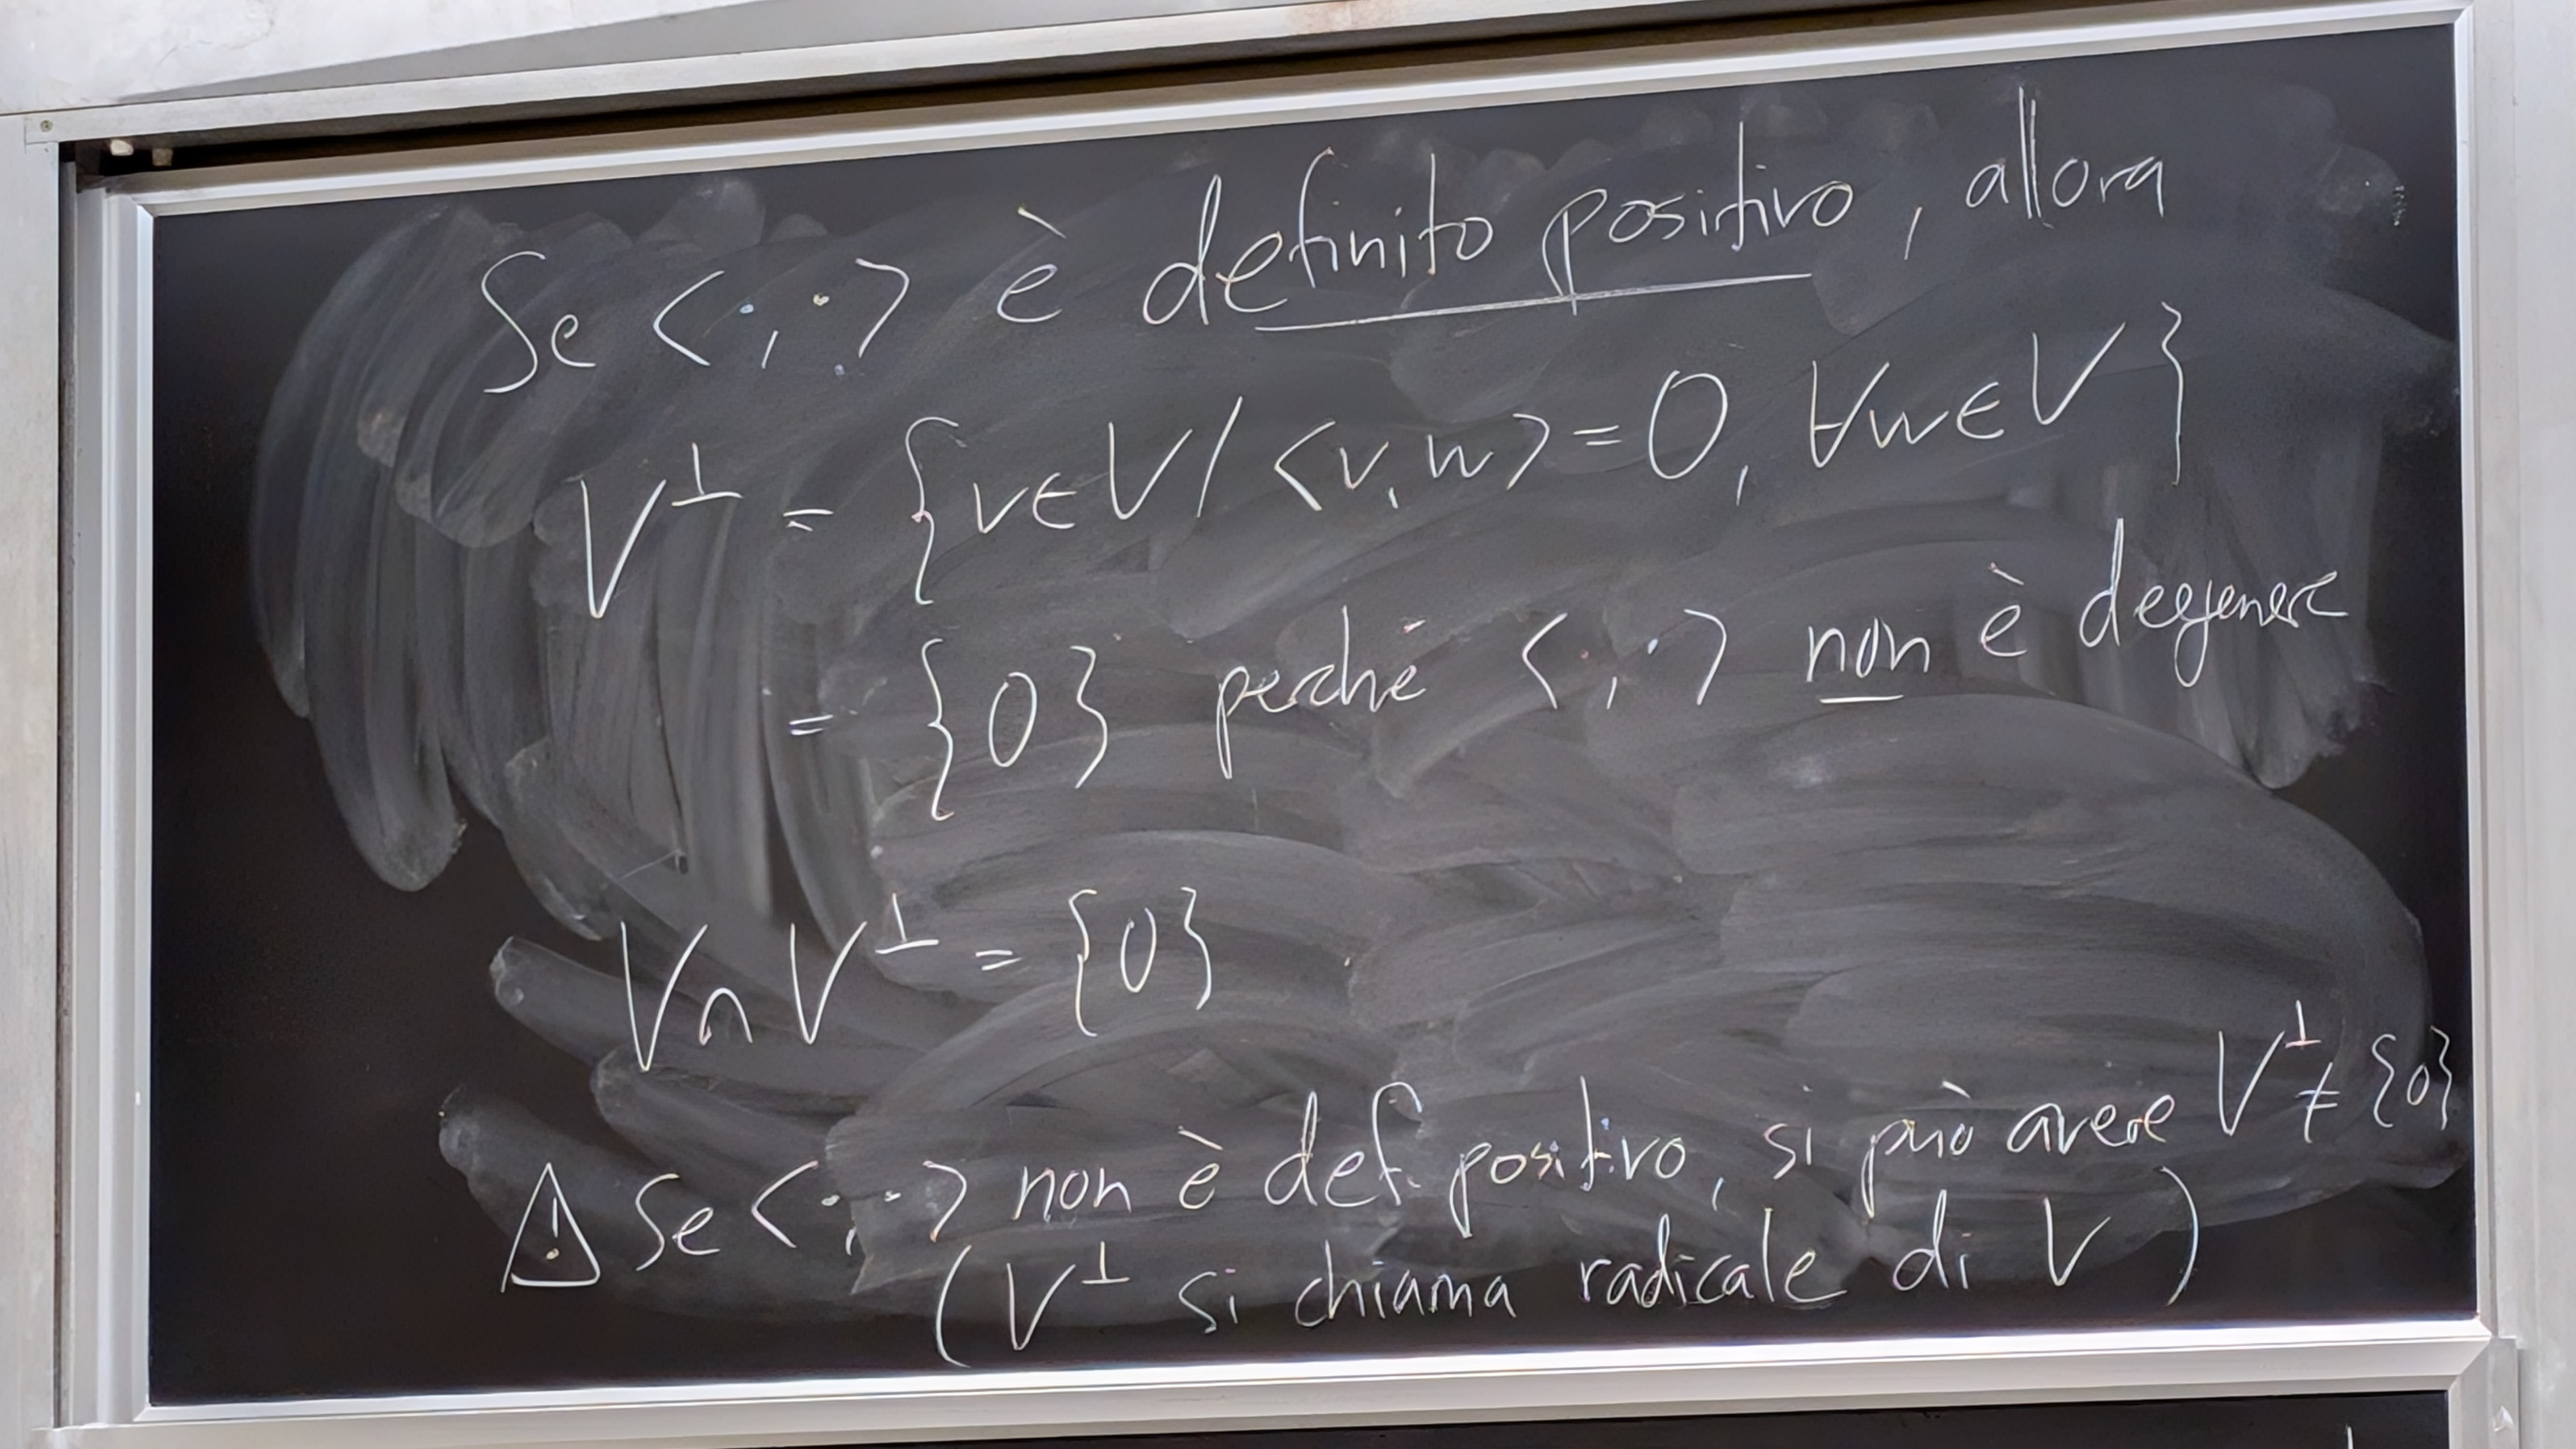 Se <·,·> è definito positivo, allora
V⊥ = {v∈V / <v,w> = 0, ∀w∈V}
= {0} perché <·,·> non è degenere
V∩V⊥ = {0}
⚠ Se <·,·> non è def. positivo, si può avere V⊥ ≠ {0}
(V⊥ si chiama radicale di V)